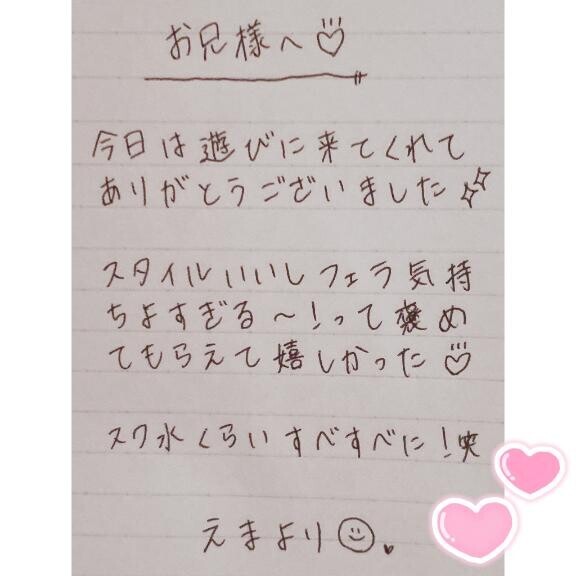 お兄様へ
今日は遊びに来てくれて
ありがとうございました
スタイルいいしフェラ気持
ちよすぎる〜!って褒め
てもらえて嬉しかった
スク水くらいすべすべに!笑
えまより